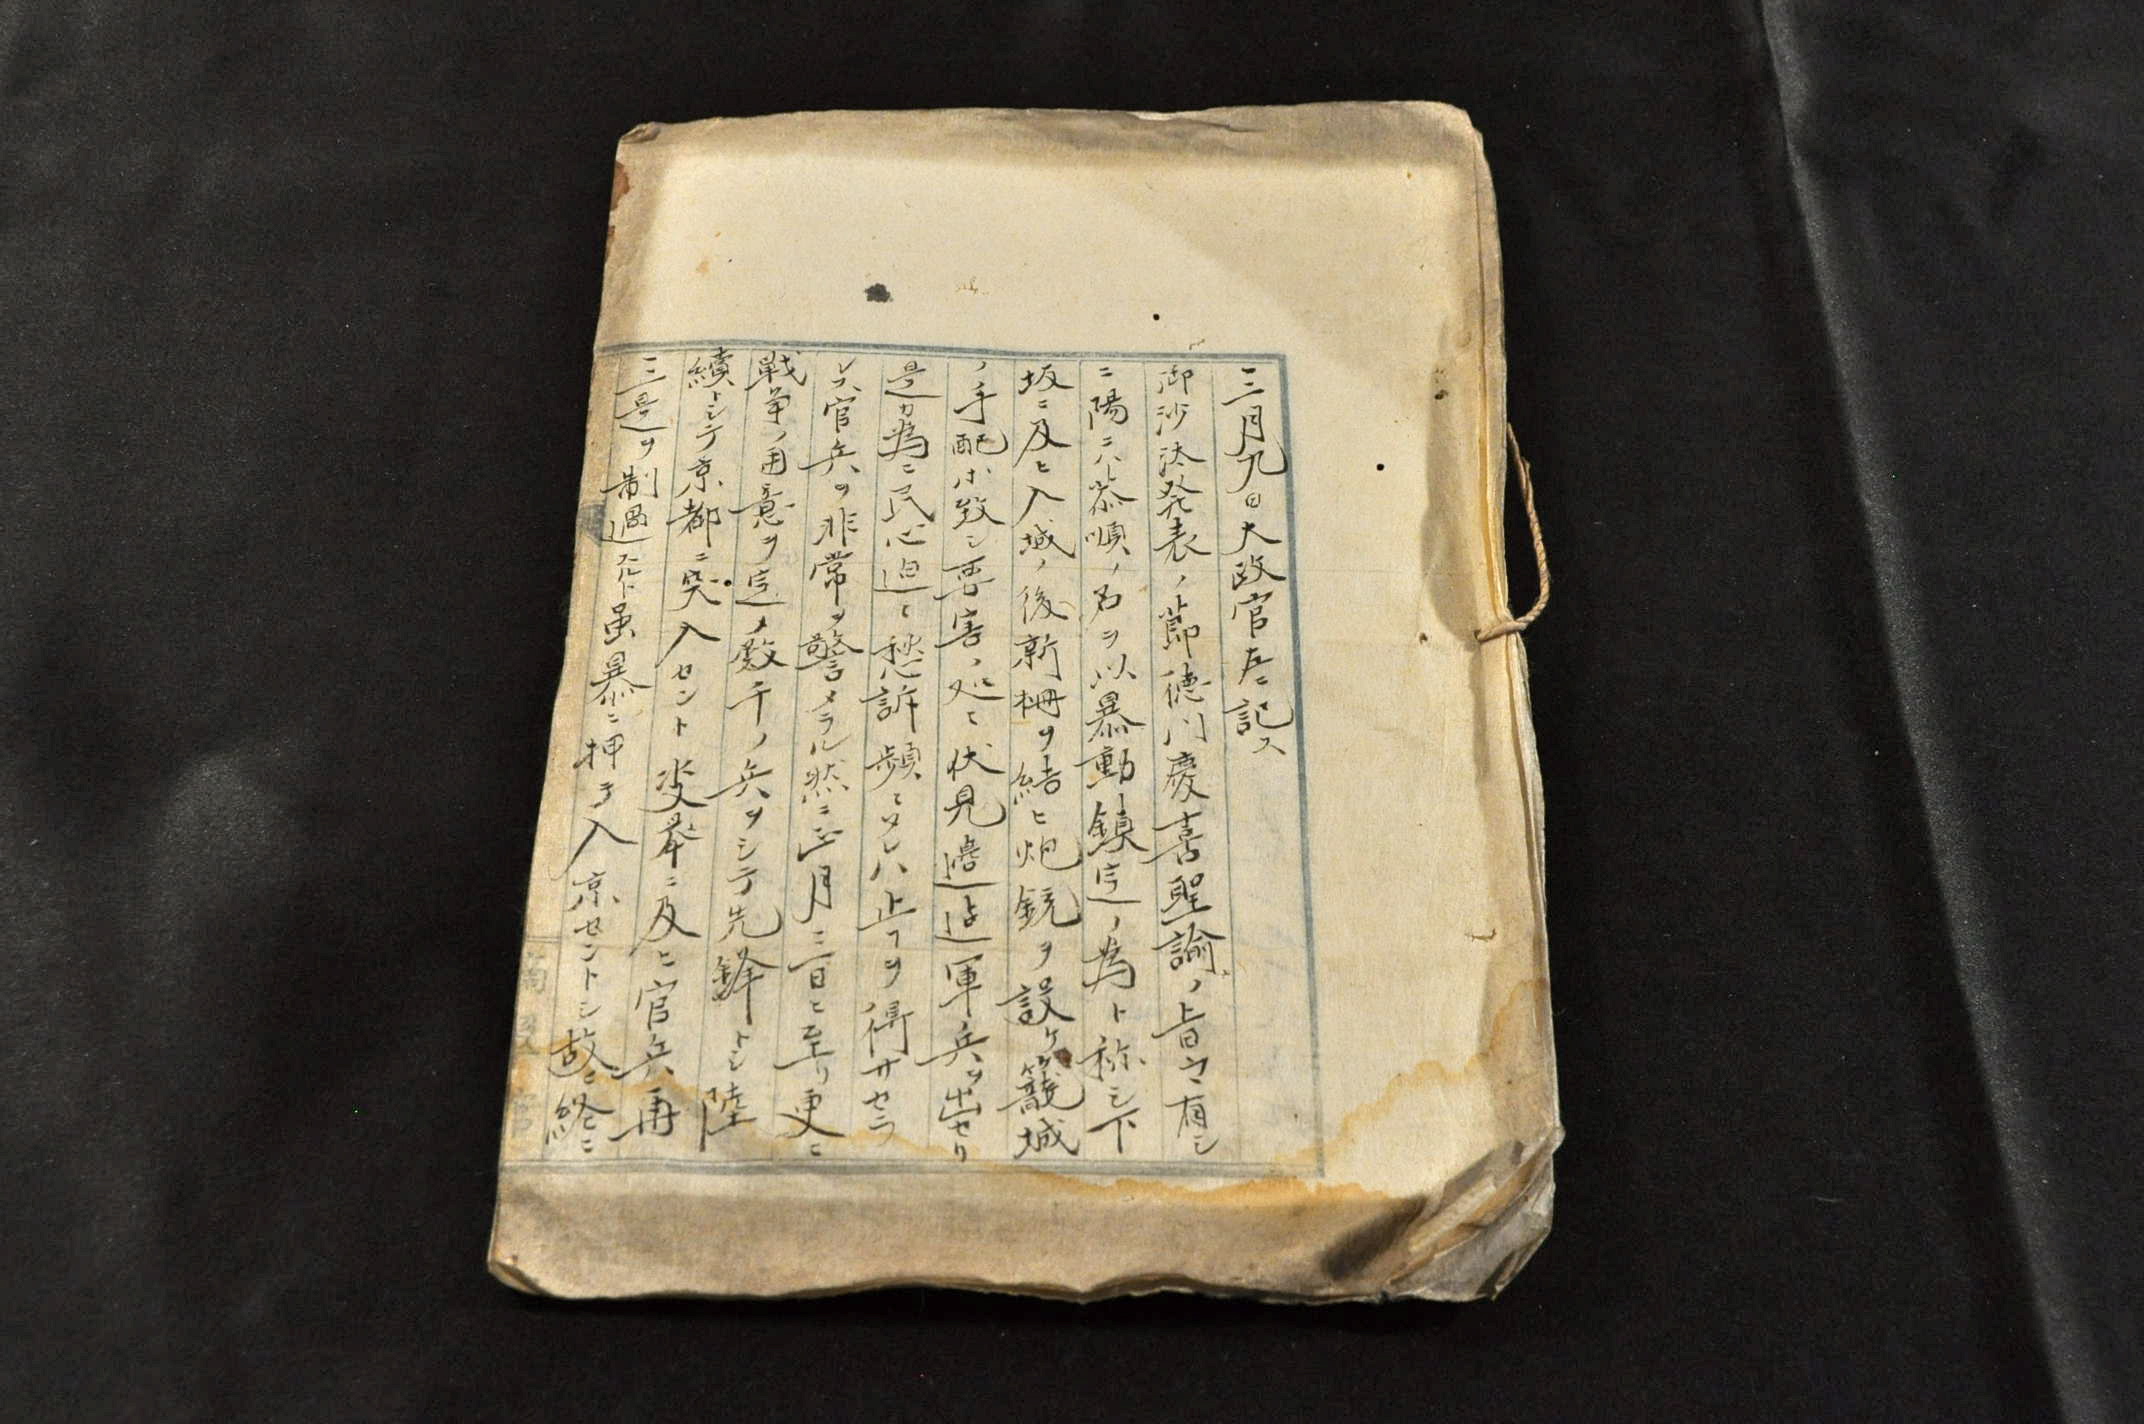 三月九日大政官左ニ記ス
御沙汰発表ノ節徳川慶喜聖諭ノ旨ヲ有シ
ニ陽ニハ恭順ノ名ヲ以暴動鎮定ノ為ト称シ下
坂ニ及ヒ入城ノ後新柵ヲ結ヒ炮銃ヲ設ケ籠城
ノ手配ホ致シ要害ノ処ヒ伏見邊迠軍兵ヲ出セリ
是カ為ニ民心迫ヒ愁訴頻ヒソレハ止ヿヲ得サセラ
レス官兵ヲ非常ヲ警メラル然ニ正月三日ヒ至リ更ニ
戦争ノ用意ヲ定メ数千ノ兵ヲシテ先鋒トシ陸
續トシテ京都ニ突入セント 挙ニ及ヒ官兵再
三是ヲ制遏スルト虽暴ニ押テ入京セントシ故ニ終ニ